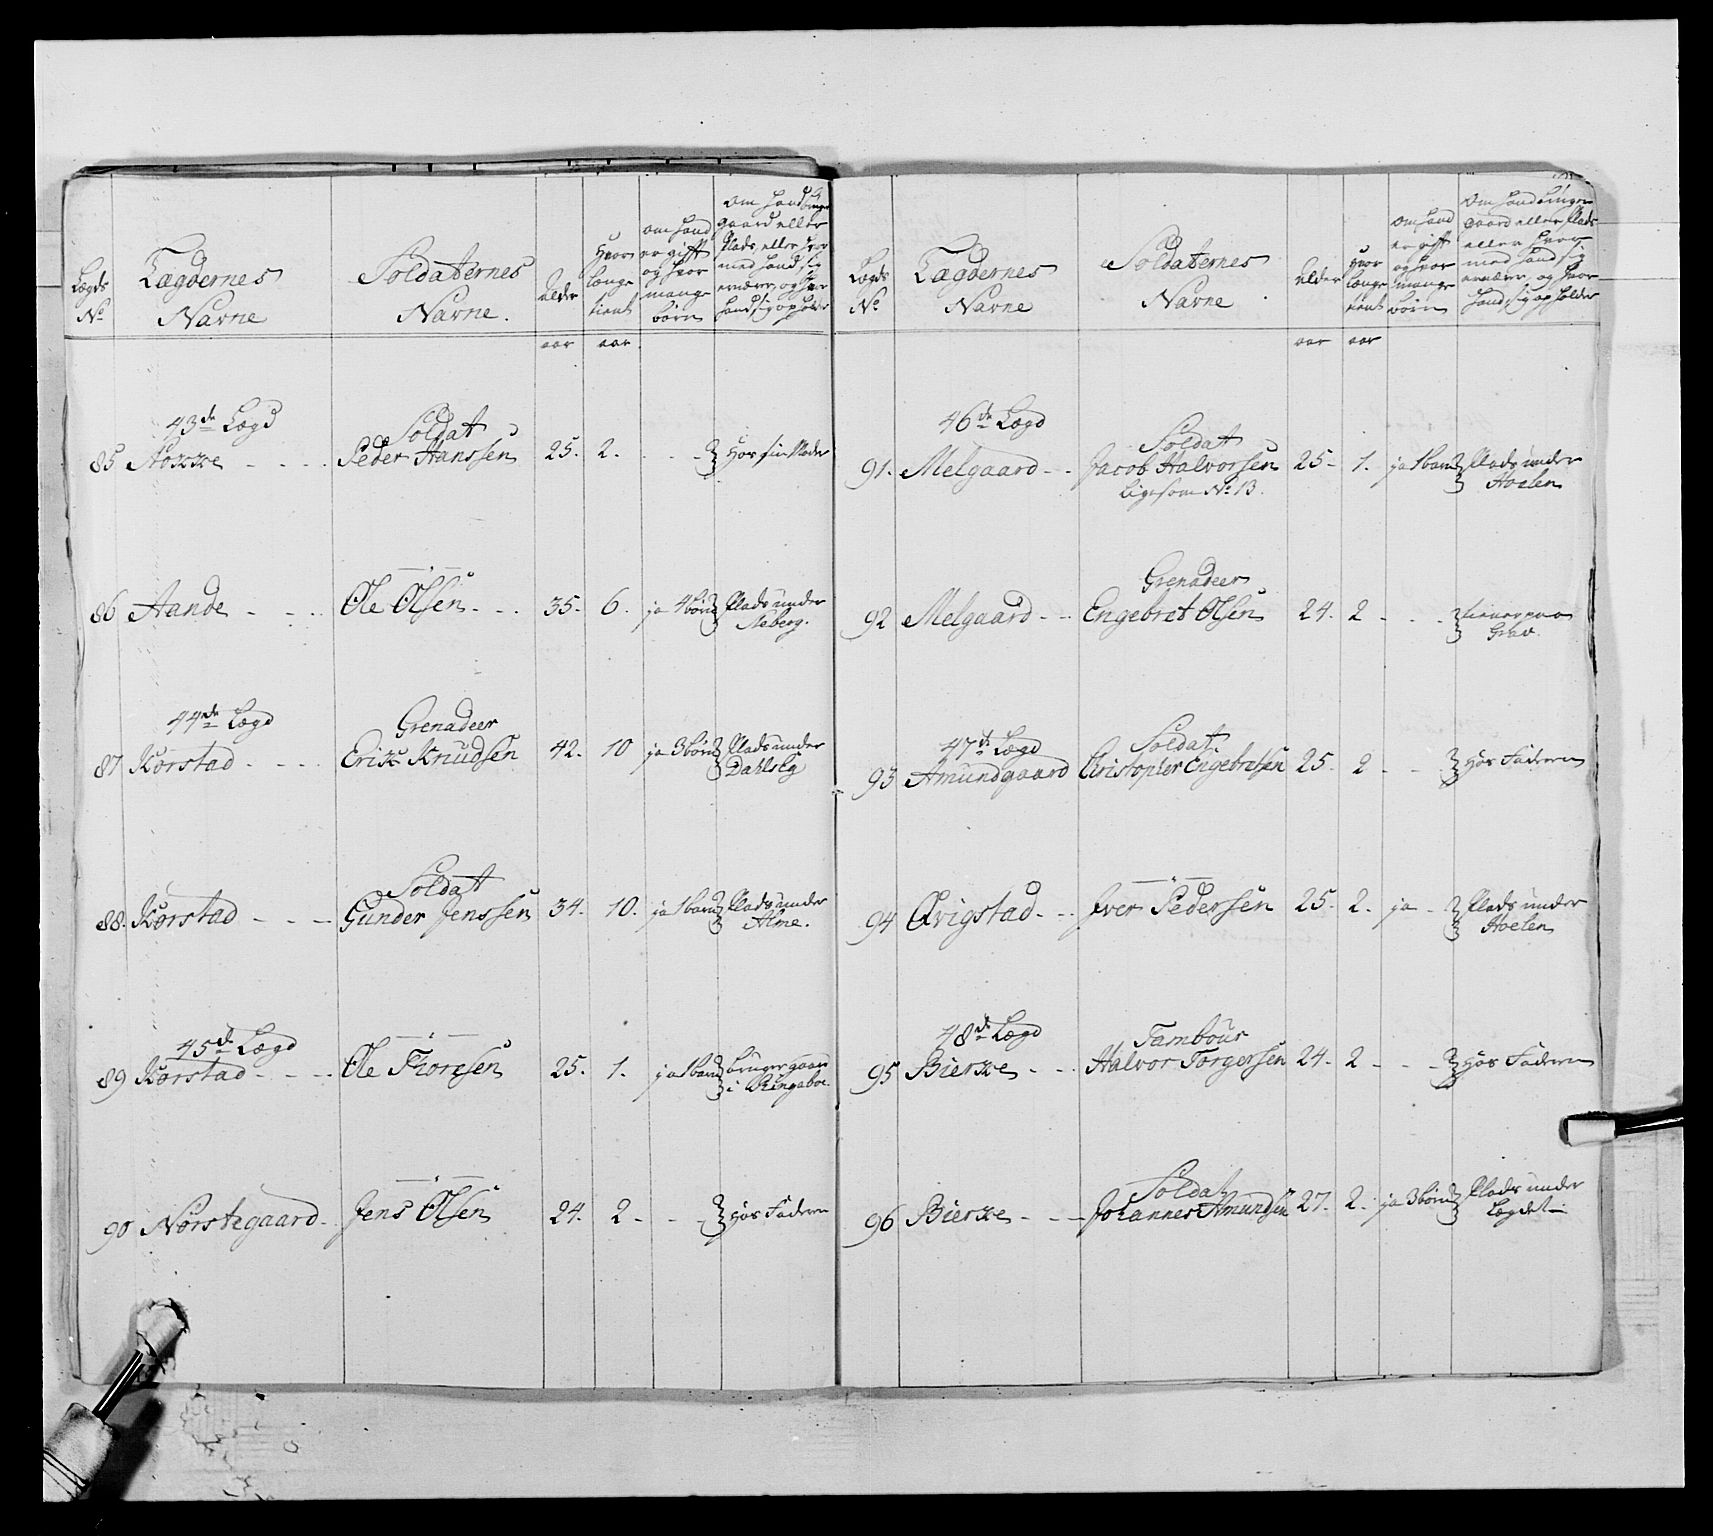 Lægds
No
Lægdernes
Navne
Soldaternes
Navne.
Alder
Hvor
længe
tient
om hand
er gift
og hvor
mange
børn
om hand bruger
gaard eller
Plads, eller hvor
med hand sig
ernærer, og hvor
hand sig opholder
aar aar
43de Lægd
Soldat
85 Peder Hanssen 25. 2. - - Hos sin Moder
86 Aande - - - Ole Olsen - - - 35. 6. ja 4 børn Plads under
Aaberg.
44de Lægd
Grenadeer
87 Korstad - - - - Erik Knudsen 42. 10 ja 3 børn Plads under
Dahlseg
Soldat
88. Korstad - - - Gunder Jenssen 34. 10. ja 1 barn Plads under
Alme.
45de Lægd
89 Korstad - - - - Ole Thoresen 25. 1. ja 1 barn bruger gaard
i Ringaboe.
90 Nørstegaard - Jens Olsen 24. 2 - - - Hos Faderen
Lægds
No
Lægdernes
Navne
Soldaternes
Navne
Alder
Hvor
længe
tient
om hand
er gift
og hvor
mange
børn
om hand bruger
gaard eller Plads
eller hvor
med hand sig
ernærer, og hvor
hand sig opholder
aar aar
46de Lægd
Soldat
91. Melgaard - - Jacob Halvorsen 25 - 1. ja 1 barn Plads under
Hoelen
Ligesom No 13.
Grenadeer
92 Melgaard - - - Engebret Olsen 24. 2 - - - tiener paa
47de Lægd
Soldat
93 Amundgaard Christopher Engebretsen 25. 2 - - Hos Faderen
94 Qvigstad - - - Iver Pedersen 25. 2. ja - Plads under
Hoelen
48de Lægd
Tambour
95 Bierke - - - Halvor Torgersen 24. 2 - - - Hos Faderen
Soldat
96 Bierke - - - Johannes Amundsen 27. 2. ja 3 børn Plads under
Lægdet -